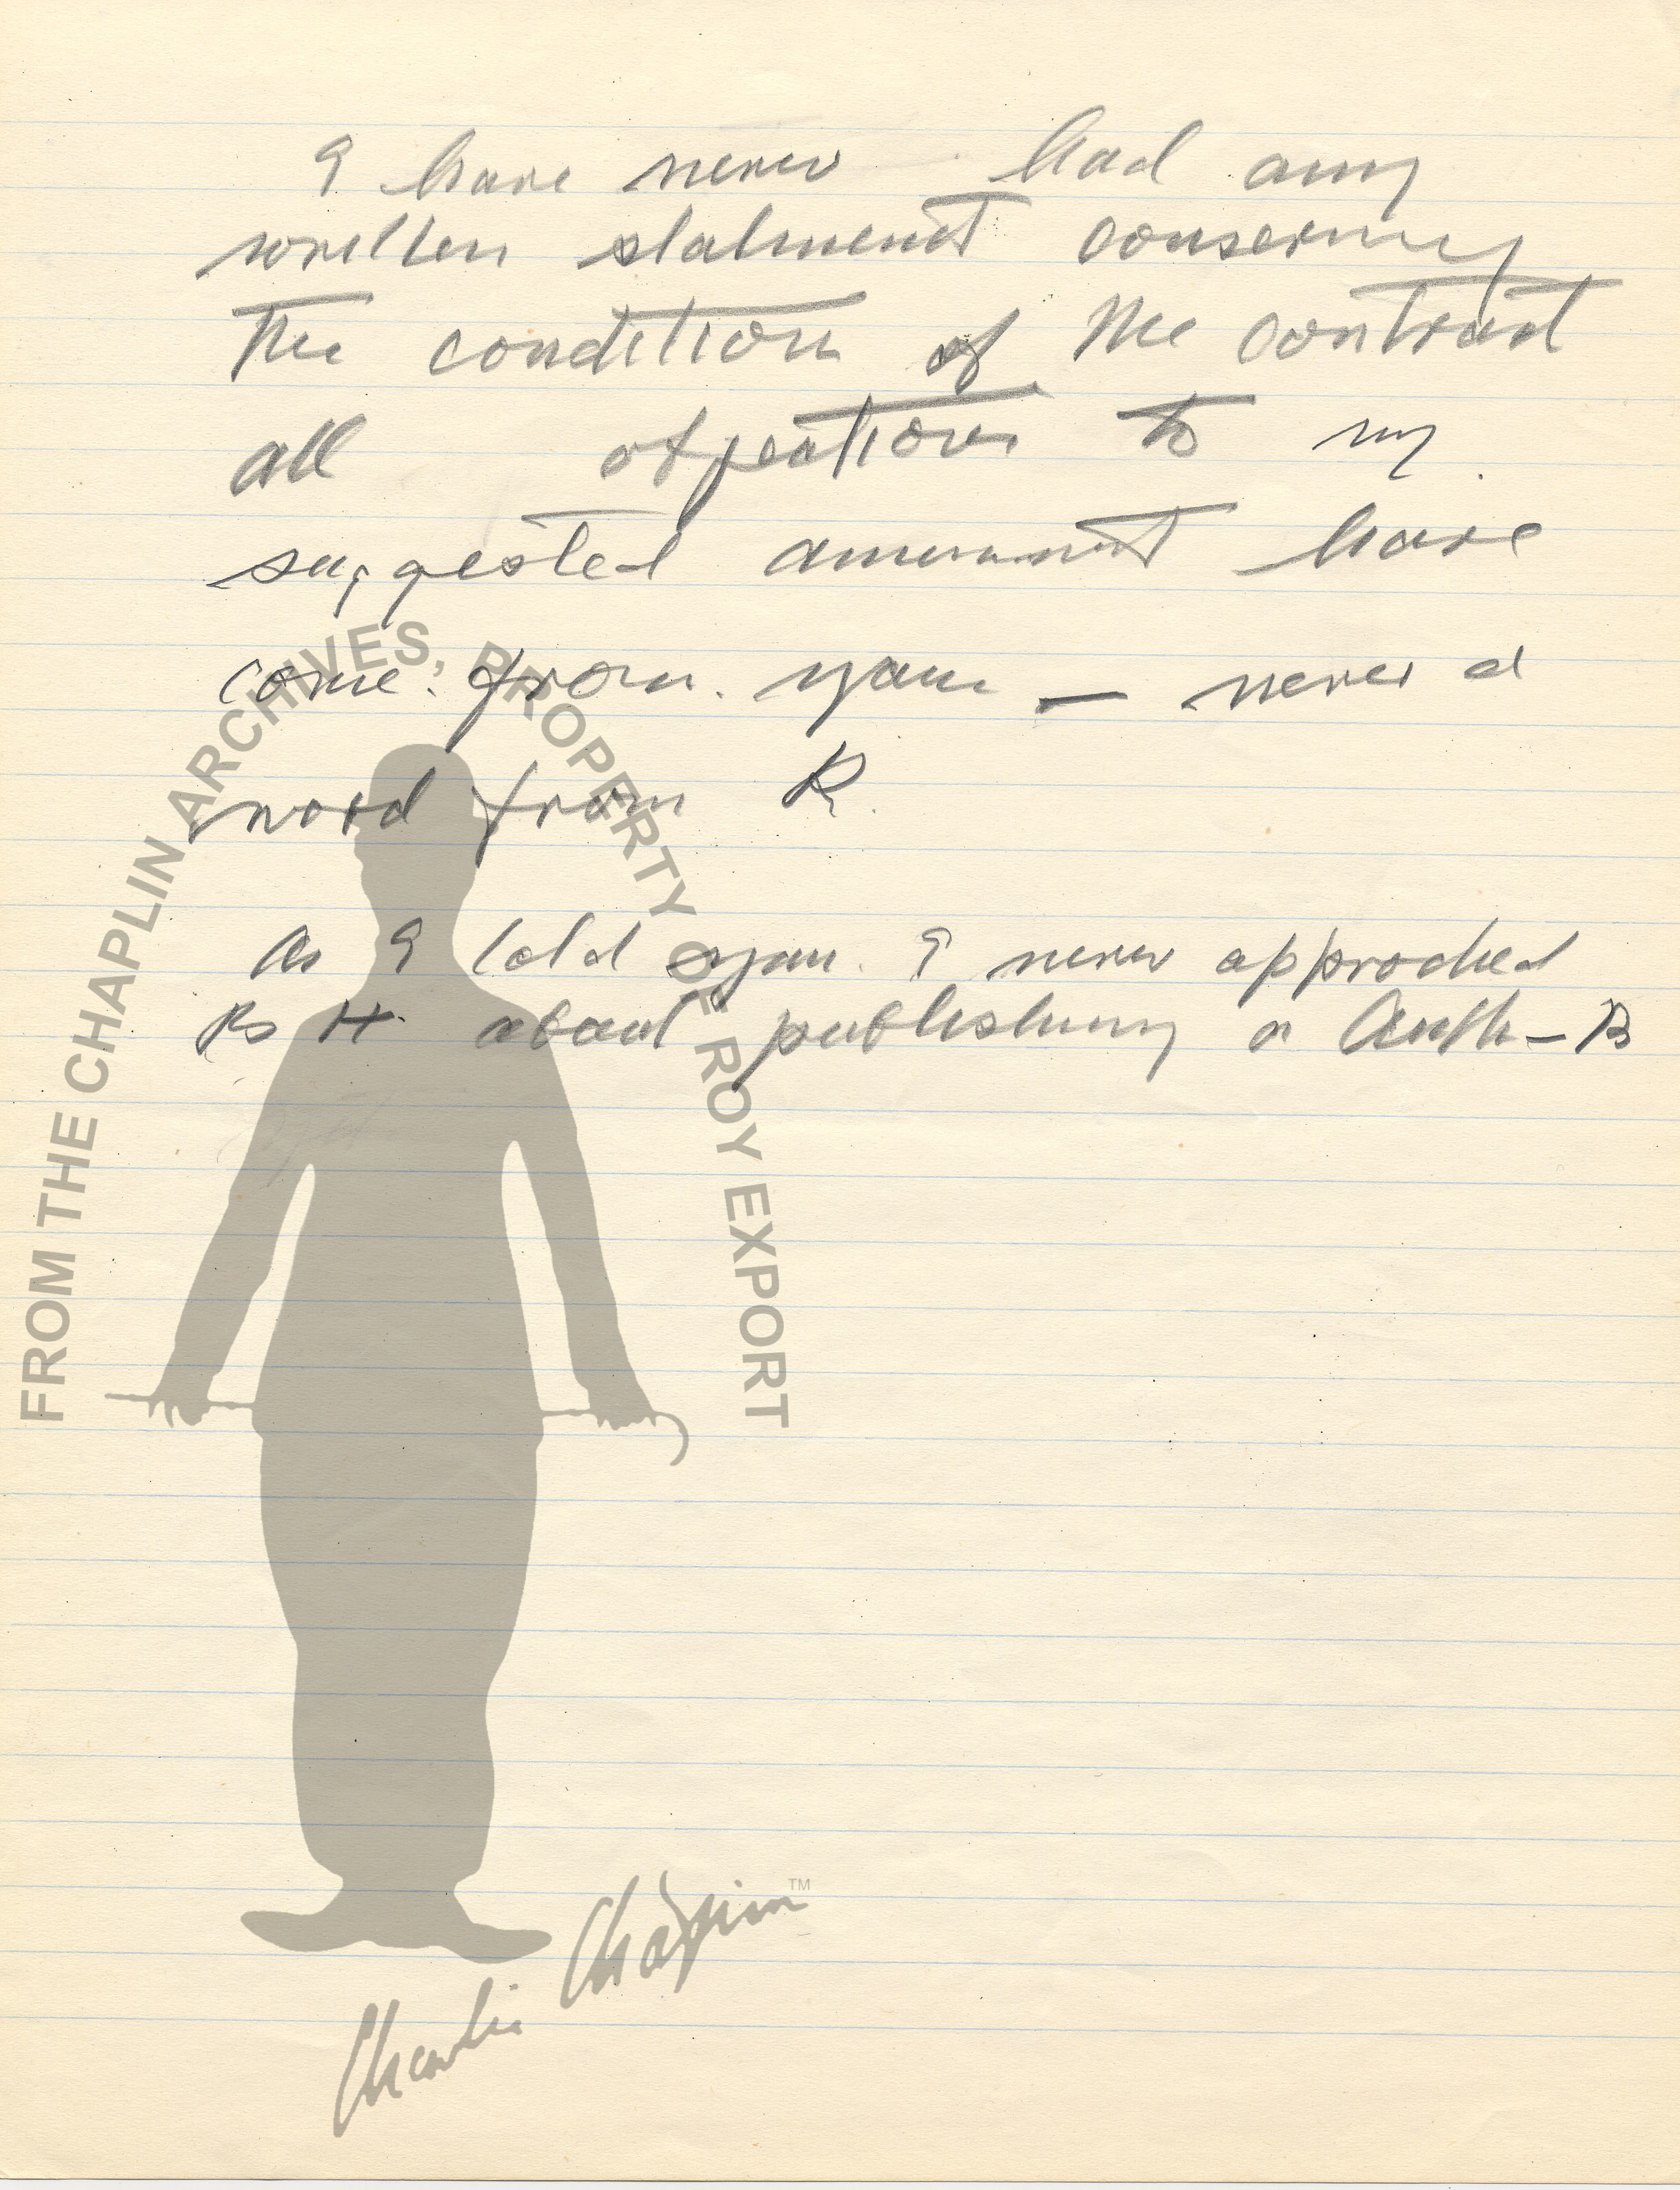 I have never had any
written statment conserning
the condition of the contract
all objections to my
suggested amount have
come from you — never a
word from R.
As I told you. I never approched
Rs H about publishing a Auth-B
FROM THE CHAPLIN ARCHIVES, PROPERTY OF ROY EXPORT
Charlie Chaplin™